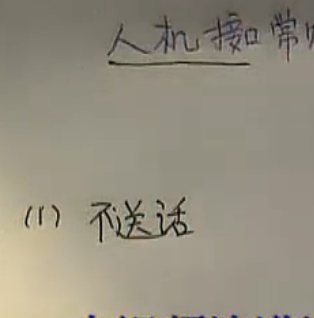 人机接口常
(1) 不送话